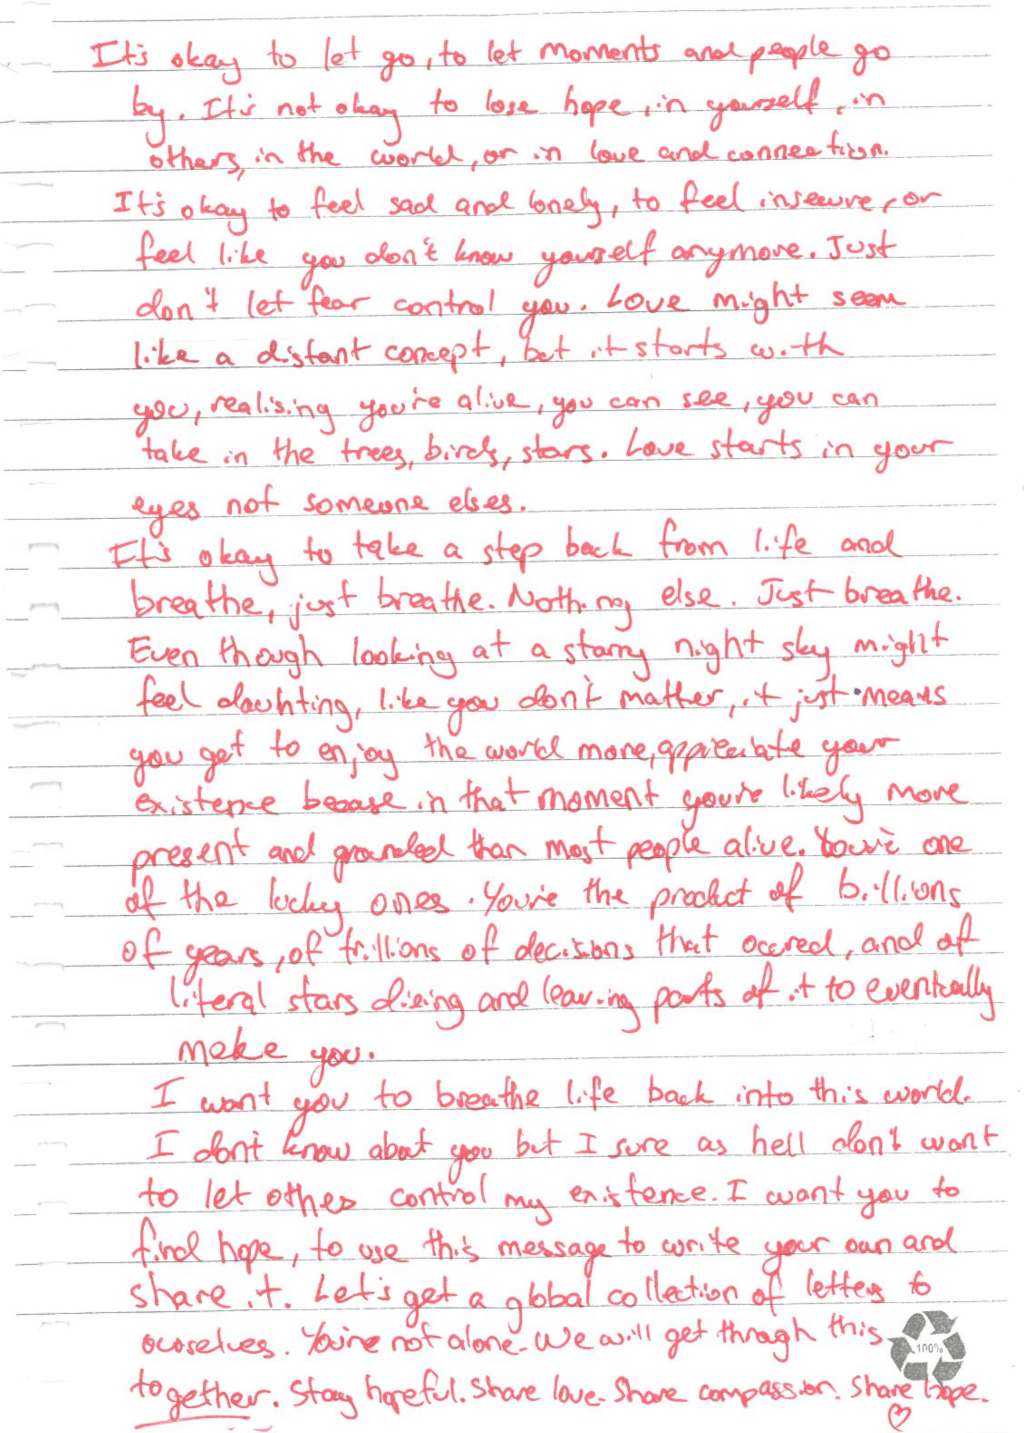 It's okay to let go, to let moments and people go
by. It's not okay to lose hope, in yourself, in
others, in the world, or in love and connection.
It's okay to feel sad and lonely, to feel insecure, or
feel like you don't know yourself anymore. Just
don't let fear control you. Love might seem
like a distant concept, but it starts with
you, realising you're alive, you can see, you can
take in the trees, birds, stars. Love starts in your
eyes not someone elses.
It's okay to take a step back from life and
breathe, just breathe. Nothing else. Just breathe.
Even though looking at a starry night sky might
feel daunting, like you don't matter, it just means
you get to enjoy the world more, appreciate your
existence because in that moment you're likely more
present and grounded than most people alive. You're one
of the lucky ones. You're the product of billions
of years, of trillions of decisions that occured, and of
literal stars dieing and leaving parts of it to eventually
make you.
I want you to breathe life back into this world.
I don't know about you but I sure as hell don't want
to let others control my existence. I want you to
find hope, to use this message to write your own and
share it. Let's get a global collection of letters to
ourselves. You're not alone. We will get through this
100%
together. Stay hopeful. Share love. Share compassion. Share hope.